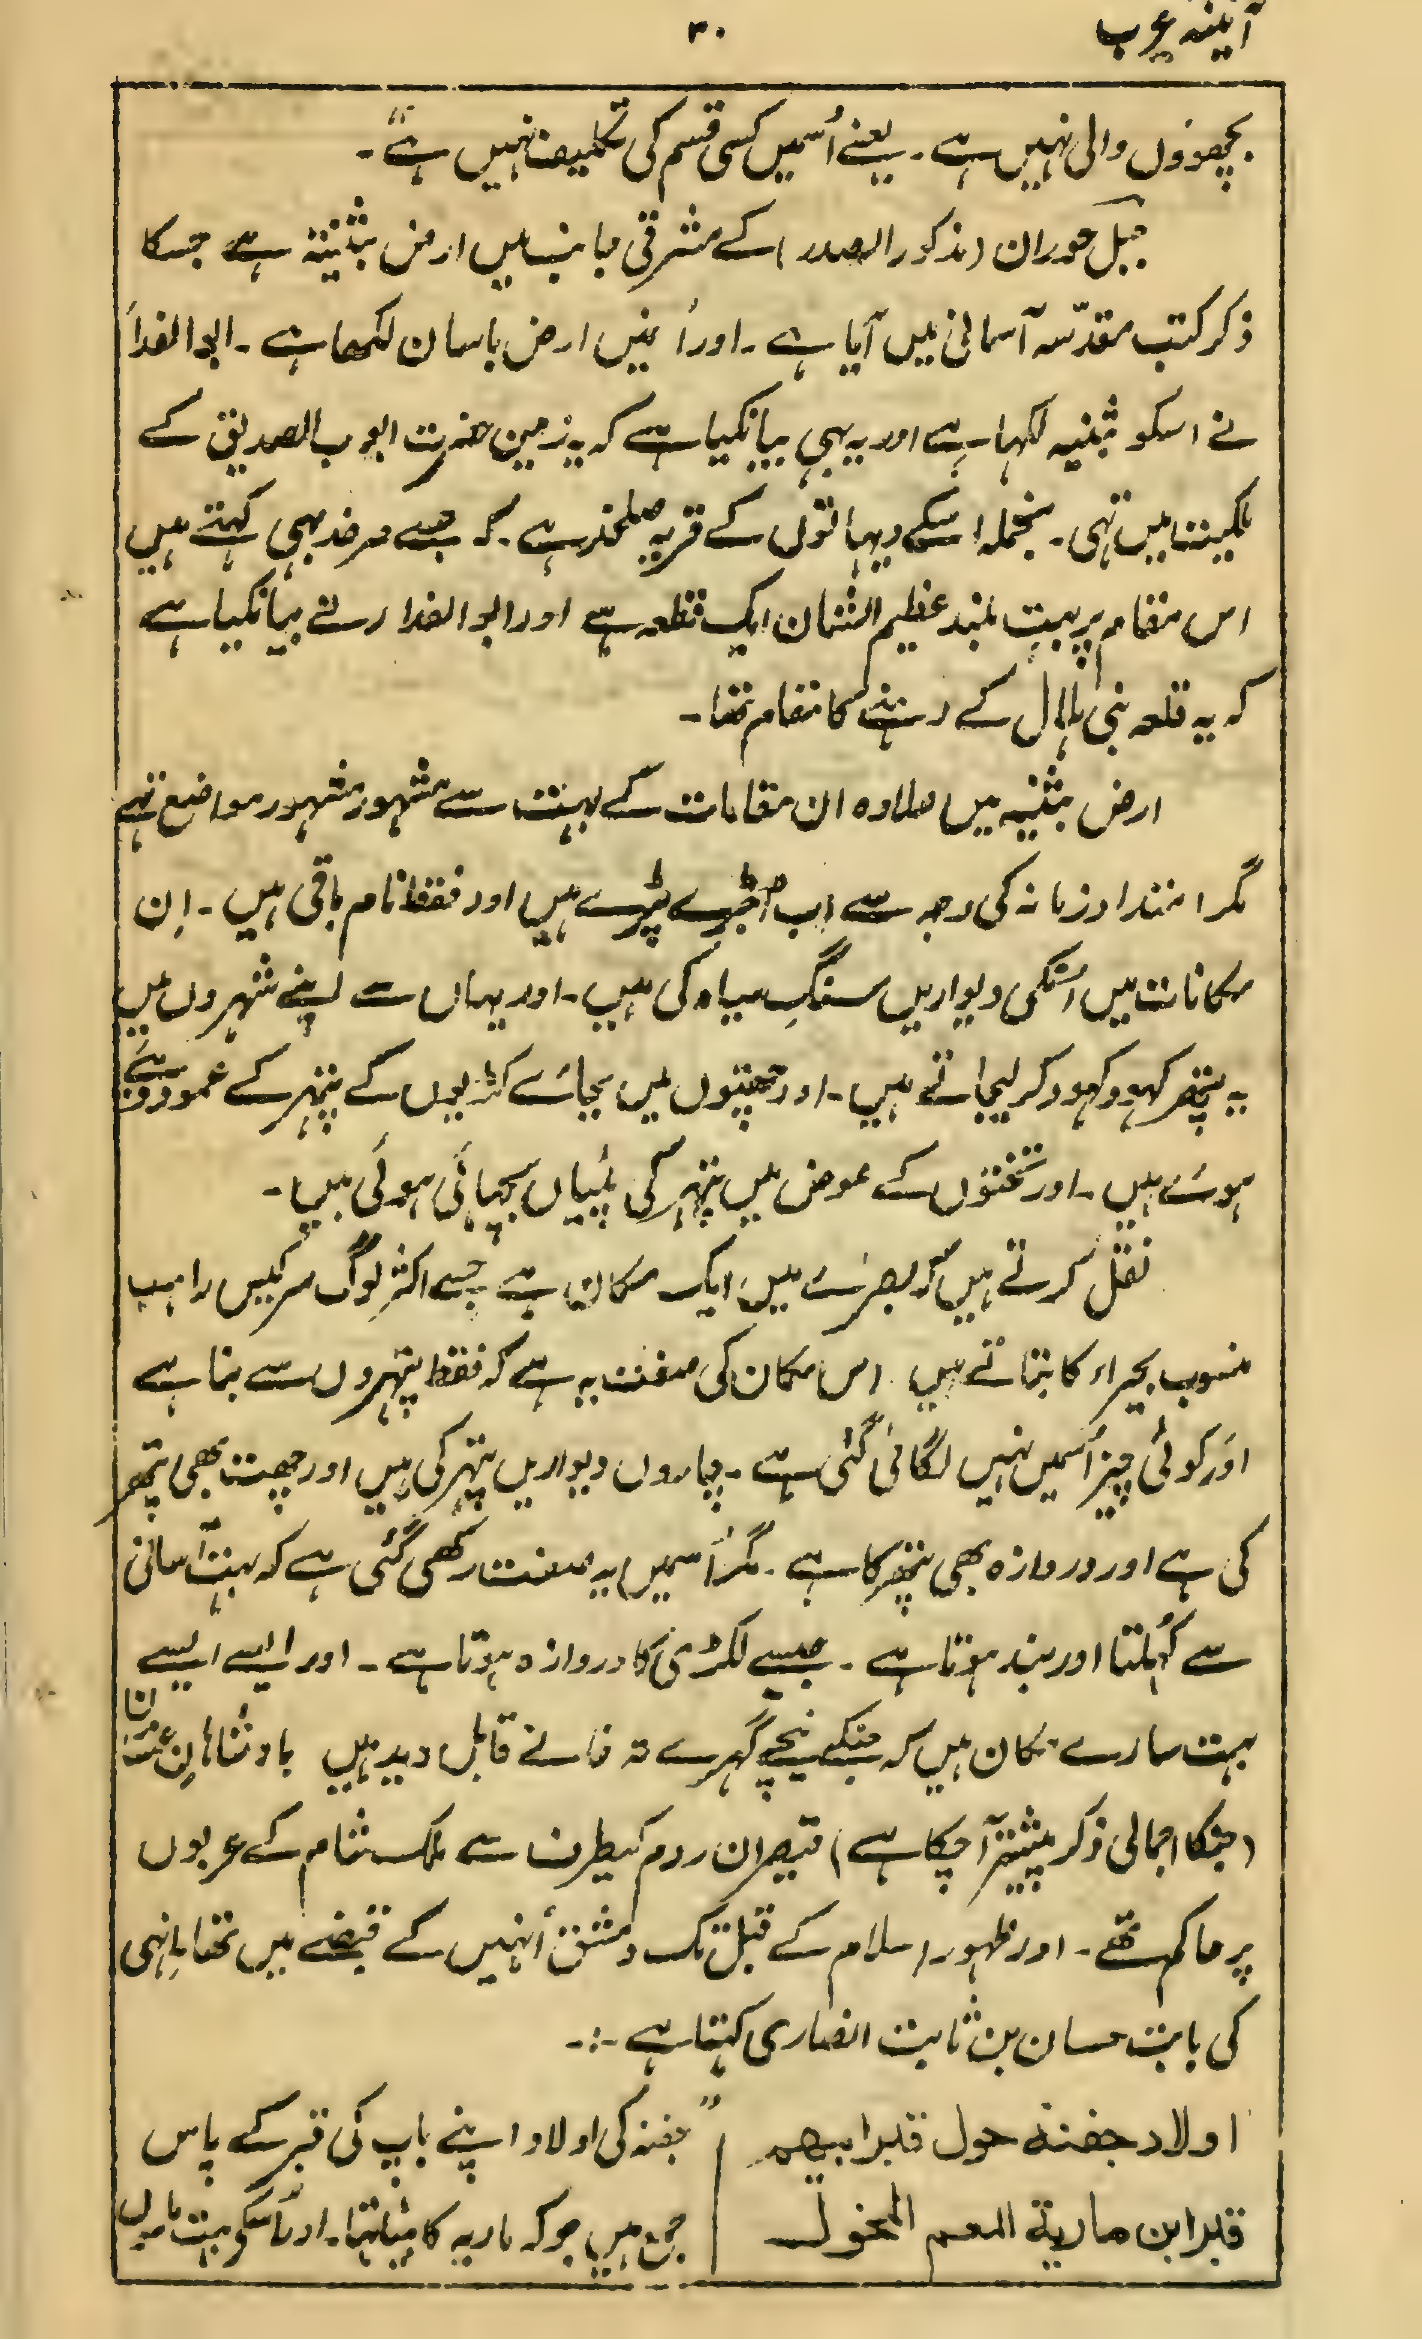 آئینہ عرب
۳۰
بچھونوں والی نہیں ہے ۔ یعنے اُسمیں کسی قسم کی تکلیف نہیں ہے"۔
جبل حوران (مذکور الصدر) کے مشرقی جانب میں ارض بثنیة ہے جسکا
ذکر کتب مقدّسہ آسمانی میں آیا ہے ۔ اور اُنہیں ارض باسان لکھا ہے ۔ ابوالفدأ
نے اسکو بثنیہ لکہا ہے اور یہ بہی بیانکیا ہے کہ یہ زمین حضرت ایوب الصدیق کے
ملکیت میں تہی ۔ منجملہ اسکے دیہاتوں کے قریہ صلخد ہے ۔ کہ جسے صرخد بہی کہتے ہیں
اس مقام پر بہت بلند عظیم الشان ایک قلعہ ہے اور ابوالفدا رنے بیانکیا ہے
کہ یہ قلعہ بنی ہلال کے رہنے کا مقام تھا ۔
ارض بثنیہ میں علاوہ ان مقامات کے بہت سے مشہور مشہور مواضع تہے
مگر امتداد زمانہ کی وجہ سے اب اُجڑے پڑے ہیں اور فقط نام باقی ہیں ۔ اِن
مکانات میں اُنکی دیواریں سنگِ سیاہ کی ہیں ۔ اور یہاں سے اپنے شہروں میں
یہ پتھر کہود کہود کر لیجاتے ہیں ۔ اور چھتوں میں بجائے کڑیوں کے پتہر کے عمود دئے
ہوئے ہیں ۔ اور تختوں کے عوض میں پتہر کی پٹیاں بچہائی ہوئی ہیں ۔
نقل کرتے ہیں کہ بصرے میں ایک مکان ہے جسے اکثر لوگ سرکیس راہب
منسوب بحیراء کا بتاتے ہیں ۔ اس مکان کی صفت یہ ہے کہ فقط پتہروں سے بنا ہے
اَور کوئی چیز اُسمیں نہیں لگائی گئی ہے ۔ چاروں دیواریں پتہر کی ہیں اور چھت بھی پتھر
کی ہے اور دروازہ بھی پتھر کا ہے ۔ مگر اُسمیں یہ صفت رکھی گئی ہے کہ بہت آسانی
سے کُہلتا اور بند ہوتا ہے ۔ جیسے لکڑی کا دروازہ ہوتا ہے ۔ اور ایسے ایسے
بہت سارے مکان ہیں کہ جنکے نیچے گہرے تہ خانے قابل دید ہیں بادشاہانِ غسّان
(جنکا اجمالی ذکر پیشتر آچکا ہے) قیصران روم کیطرف سے ملک شام کے عربوں
پر حاکم تھے ۔ اور ظہور اسلام کے قبل تک دمشق اُنہیں کے قبضے میں تھا اِنہی
کی بابت حسان بن ثابت انصاری کہتا ہے :۔
اولاد جفنة حول قبر ابیهم
"جفنہ کی اولاد اپنے باپ کی قبر کے پاس
قبر ابن مارية المعم المخول
جمع ہیں جو کہ ماریہ کا بیٹا تہا ۔ اور اُسکو بہت ماموں